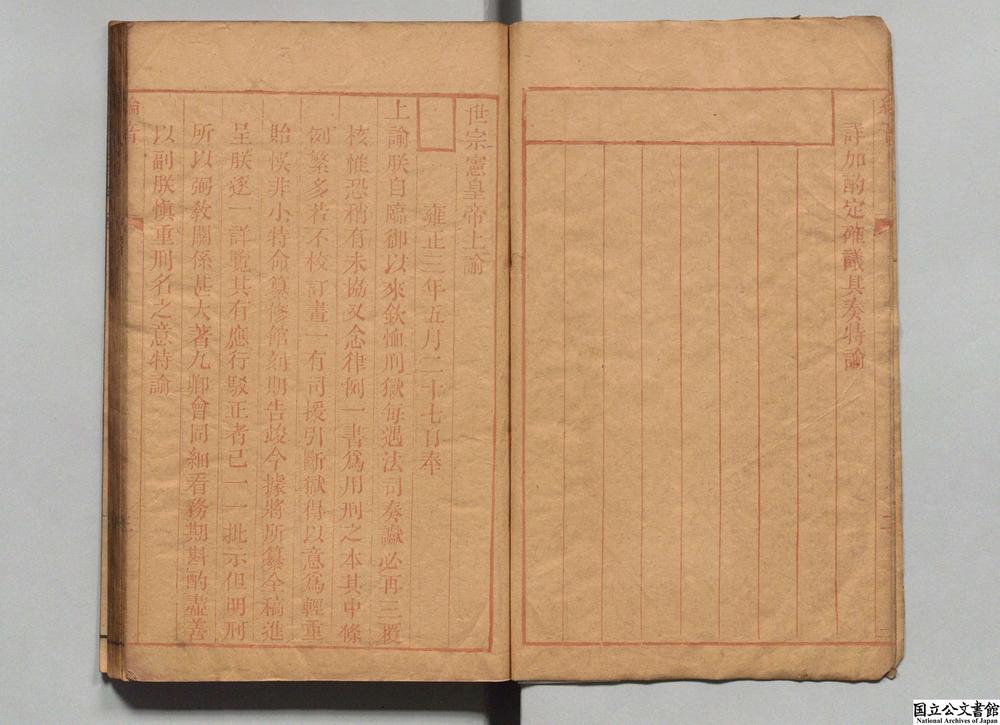 詳加酌定確議具奏特諭
二
世宗憲皇帝上諭
雍正三年五月二十七日奉
上諭朕自臨御以來欽恤刑獄每遇法司奏讞必再三覆
核惟恐稍有未協又念律例一書爲用刑之本其中條
例繁多若不校訂畫一有司援引斷獄得以意爲輕重
貽悞非小特命纂修館刻期告竣今據將所纂全稿進
呈朕逐一詳覽其有應行駁正者已一一批示但明刑
所以弼敎關係甚大著九卿會同細看務期斟酌盡善
以副朕慎重刑名之意特諭
国立公文書館
National Archives of Japan